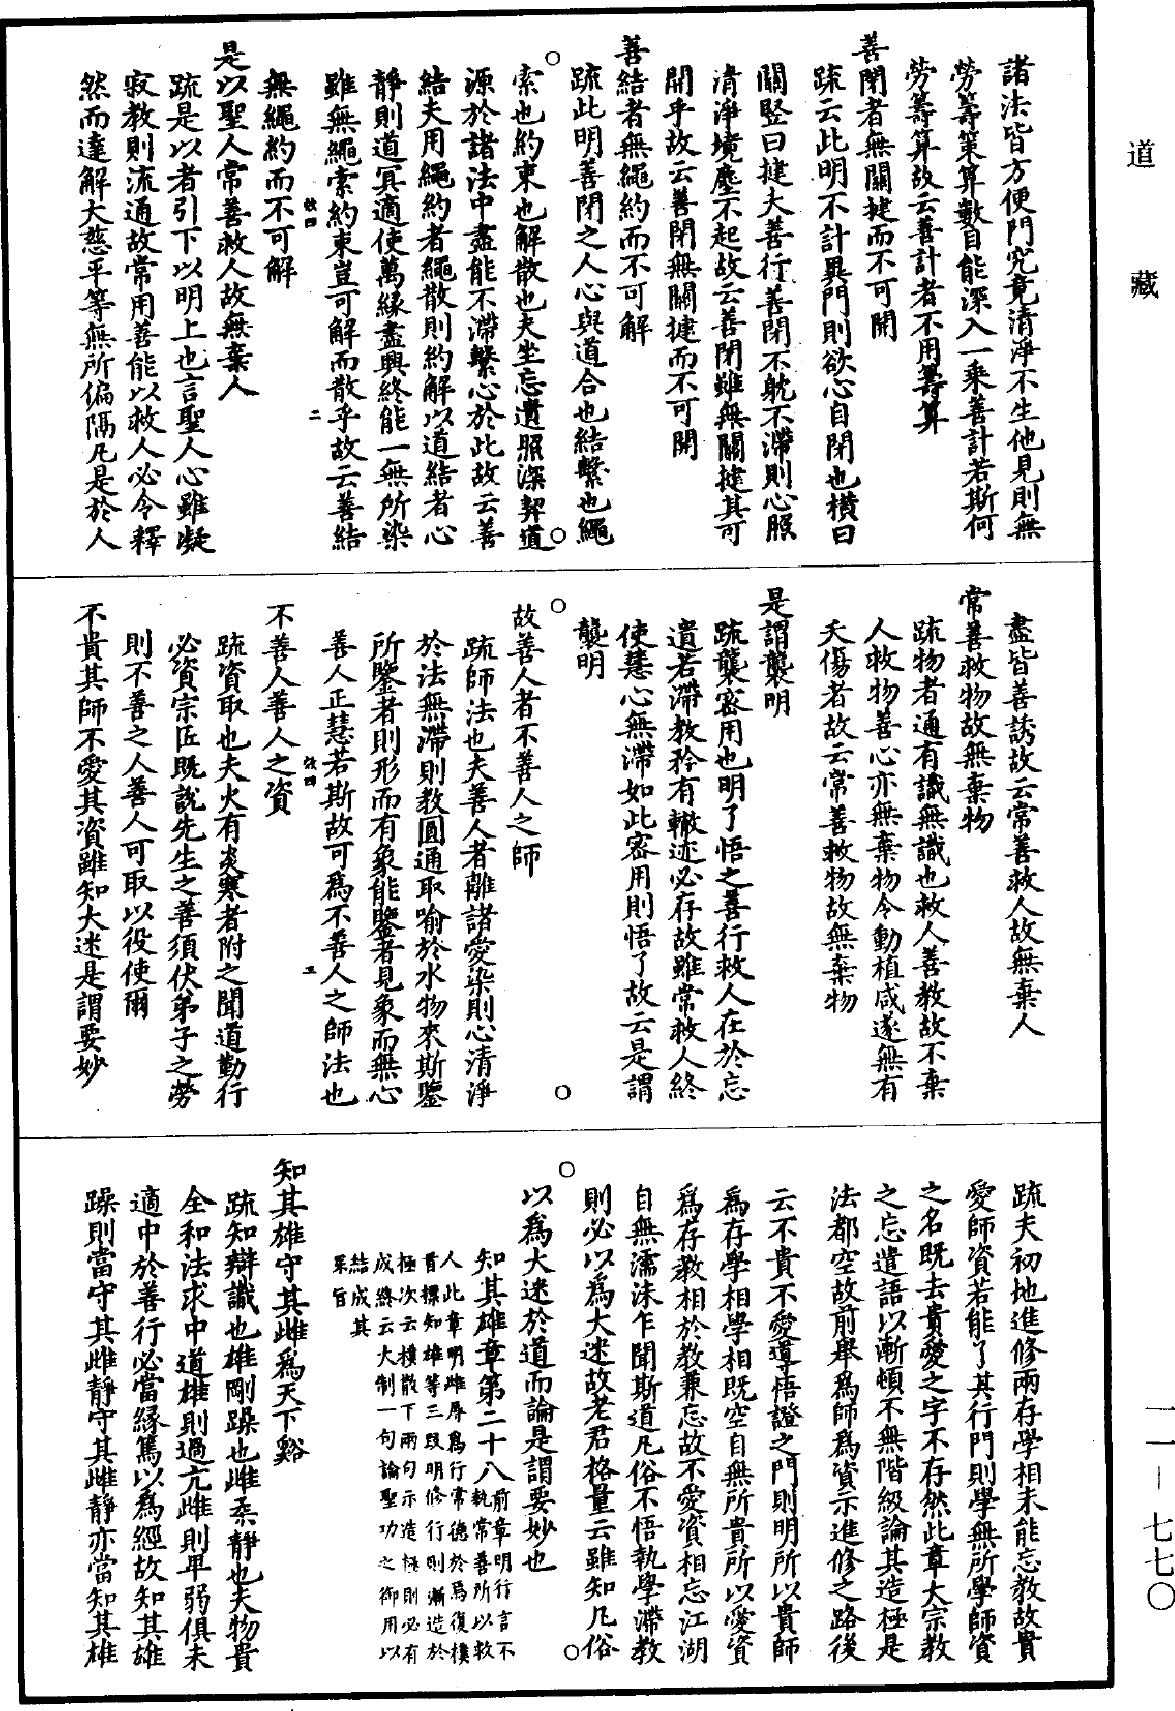 道藏
諸法皆方便門究竟清淨不生他見則無
勞籌策算數自能深入一乘善計若斯何
勞籌算故云善計者不用籌算
善閉者無關揵而不可開
疏云此明不計異門則欲心自閉也橫曰
關豎曰揵夫善行善閉不躭不滯則心照
清淨境塵不起故云善閉雖無關揵其可
開乎故云善閉無關揵而不可開
善結者無繩約而不可解
疏此明善閉之人心與道合也結繫也繩
索也約束也解散也夫坐忘遺照深契道
源於諸法中盡能不滯繫心於此故云善
結夫用繩約者繩散則約解以道結者心
靜則道冥適使萬緣盡興終能一無所染
雖無繩索約束豈可解而散乎故云善結
無繩約而不可解
是以聖人常善救人故無棄人
疏是以者引下以明上也言聖人心雖凝
寂教則流通故常用善能以救人必令釋
然而達解大慈平等無所偏隔凡是於人
盡皆善誘故云常善救人故無棄人
常善救物故無棄物
疏物者通有識無識也救人善教故不棄
人救物善心亦無棄物令動植咸遂無有
夭傷者故云常善救物故無棄物
是謂襲明
疏襲密用也明了悟之善行救人在於忘
遺若滯教矜有轍迹必存故雖常救人終
使慧心無滯如此密用則悟了故云是謂
襲明
故善人者不善人之師
疏師法也夫善人者離諸愛染則心清淨
於法無滯則教圓通取喻於水物來斯鑒
所鑒者則形而有象能鑒者見象而無心
善人正慧若斯故可爲不善人之師法也
不善人善人之資
疏資取也夫火有炎寒者附之聞道勤行
必資宗匠既說先生之善須伏弟子之勞
則不善之人善人可取以役使爾
不貴其師不愛其資雖知大迷是謂要妙
疏夫初地進修兩存學相未能忘教故貴
愛師資若能了其行門則學無所學師資
之名既去貴愛之字不存然此章大宗教
之忘遣語以漸頓不無階級論其造極是
法都空故前舉爲師爲資示進修之路後
云不貴不愛導悟證之門則明所以貴師
爲存學相學相既空自無所貴所以愛資
爲存教相於教兼忘故不愛資相忘江湖
自無濡沫乍聞斯道凡俗不悟執學滯教
則必以爲大迷故老君格量云雖知凡俗
以爲大迷於道而論是謂要妙也
知其雄章第二十八
前章明行言不執常善所以救
人此章明雌辱爲行常德於焉復樸
首標知雄等三段明修行則漸造於
極次云樸散下兩句示造極則必有
成終云大制一句論聖功之御用以
結成其
旨
知其雄守其雌爲天下谿
疏知辯識也雄剛躁也雌柔靜也夫物貴
全和法求中道雄則過亢雌則卑弱俱未
適中於善行必當緣篤以爲經故知其雄
躁則當守其雌靜守其雌靜亦當知其雄
一一—七七〇